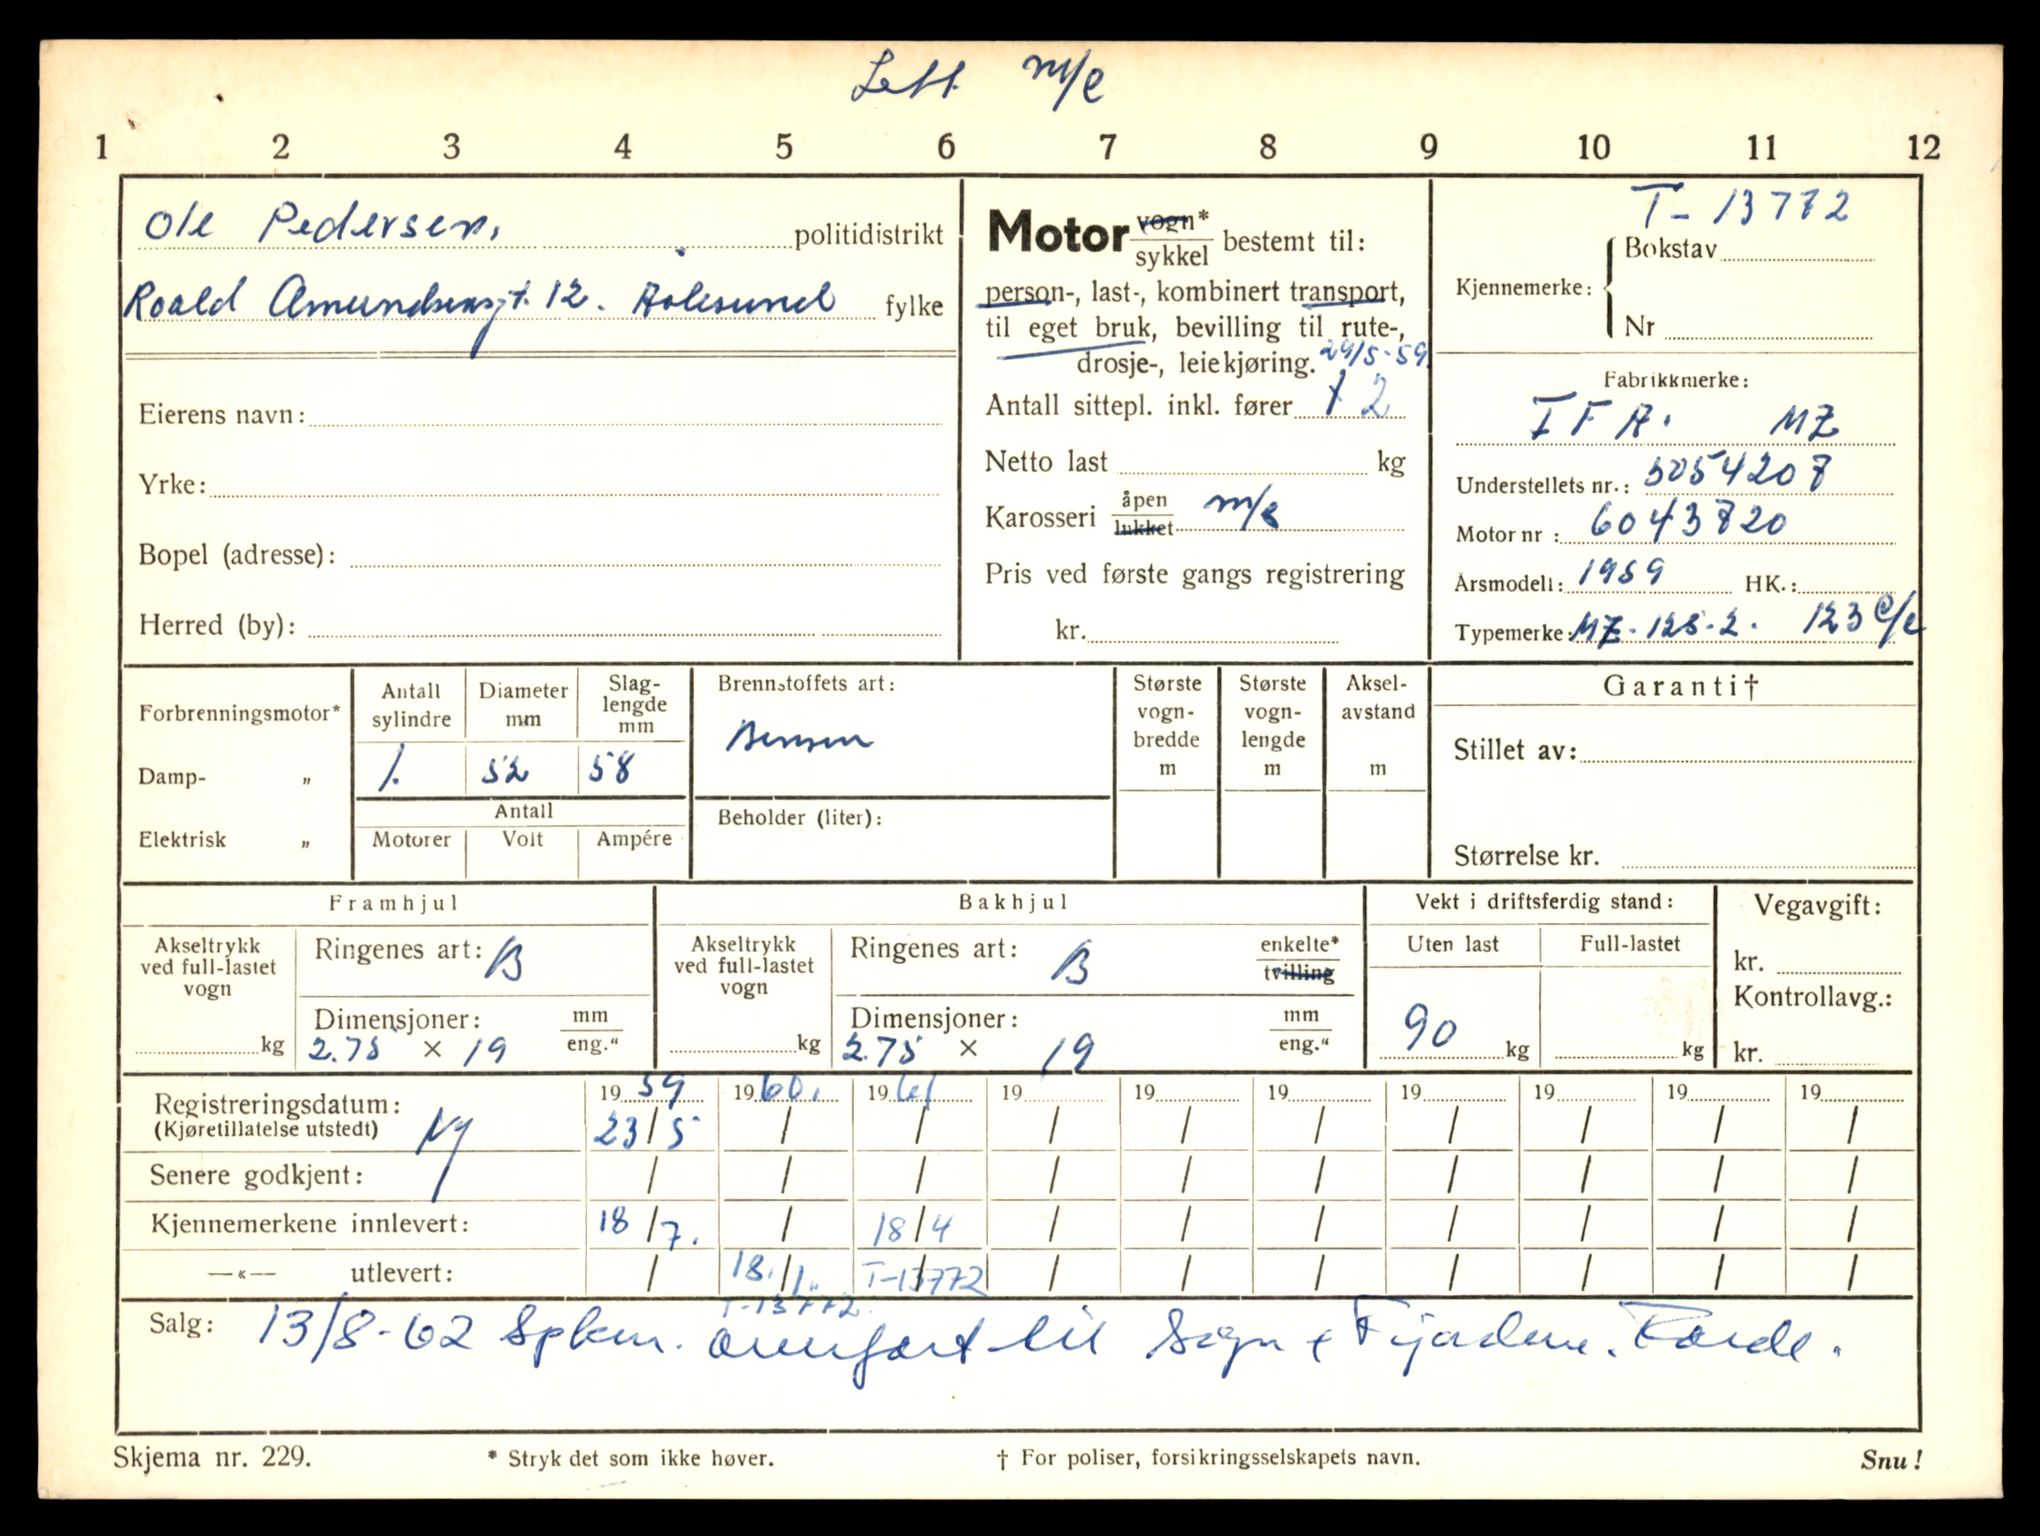 Lett m/c
1 2 3 4 5 6 7 8 9 10 11 12
Ole Pedersen. politidistrikt
Roald Amundsensgt. 12. Aalesund fylke
Eierens navn:
Yrke:
Bopel (adresse):
Herred (by):
Motor vogn* sykkel bestemt til:
person-, last-, kombinert transport,
til eget bruk, bevilling til rute-,
drosje-, leiekjøring. 29/5-59.
Antall sittepl. inkl. fører 1 2
Netto last kg
Karosseri åpen lukket m/c
Pris ved første gangs registrering
kr.
T-13772
Kjennemerke: Bokstav
Nr
Fabrikkmerke:
IFA. MZ
Understellets nr.: 5054207
Motor nr : 6043720
Årsmodell: 1959 HK.:
Typemerke: MZ-125-2. 123 c/c
Forbrenningsmotor*
Damp- „
Elektrisk „
Antall sylindre Diameter mm Slag-lengde mm
1. 52 58
Antall
Motorer Volt Ampére
Brennstoffets art:
Bensin
Beholder (liter):
Største vogn-bredde m
Største vogn-lengde m
Aksel-avstand m
Garanti†
Stillet av:
Størrelse kr.
Framhjul
Akseltrykk ved full-lastet vogn
kg
Ringenes art: B
Dimensjoner: mm eng.“
2.75 × 19
Bakhjul
Akseltrykk ved full-lastet vogn
kg
Ringenes art: B enkelte* tvilling
Dimensjoner: mm eng.“
2.75 × 19
Vekt i driftsferdig stand:
Uten last Full-lastet
90 kg kg
Vegavgift:
kr.
Kontrollavg.:
kr.
Registreringsdatum: 19 59 19 60. 19 61 19 19 19 19 19 19 19
(Kjøretillatelse utstedt) Ny 23/5 / / / / / / / / /
Senere godkjent: / / / / / / / / / /
Kjennemerkene innlevert: 18/7. / 18/4 / / / / / / /
—«— utlevert: / 18./1. T-13772 / / / / / / /
T-13772.
Salg: 13/8-62 Spkm. overført til Sogn & Fjordane. Førde.
Skjema nr. 229. * Stryk det som ikke høver. † For poliser, forsikringsselskapets navn. Snu!